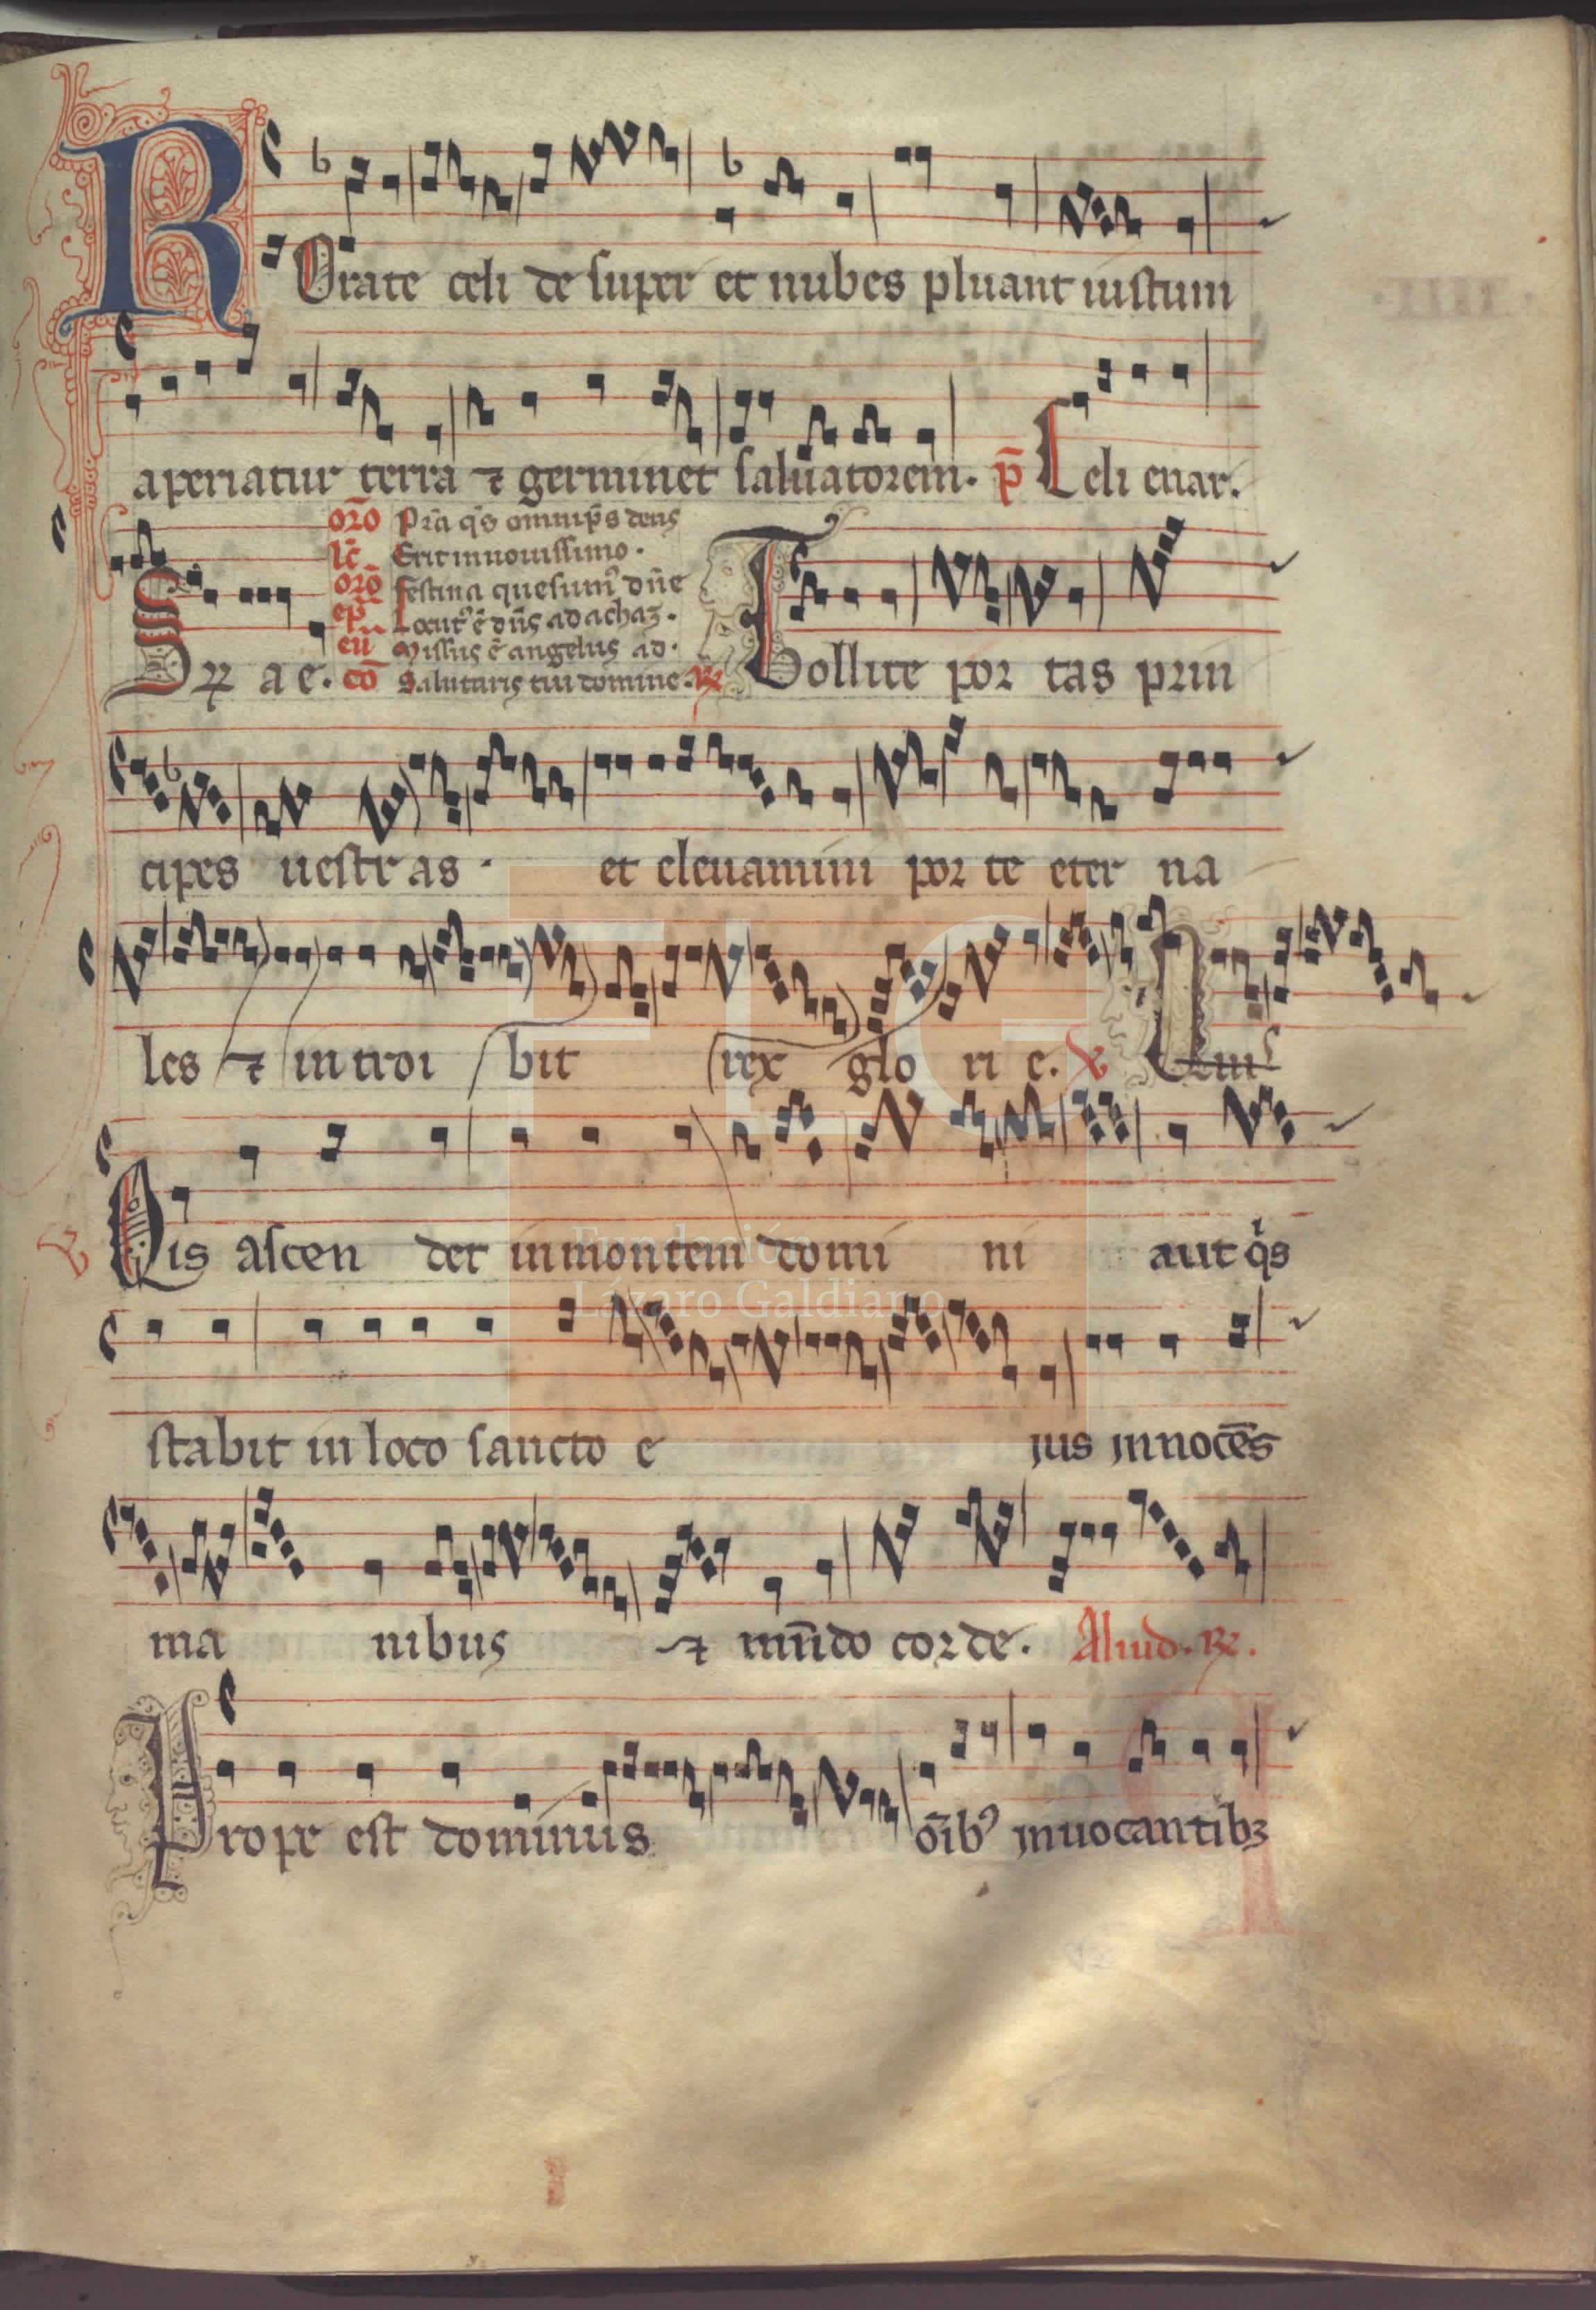 ROrate celi de super et nubes pluant iustum
aperiatur terra ⁊ germinet saluatorem. p̄ Celi enar.
oro Pr̄a q̄s omnip̄s deus
lc̄ Erit in nouissimo.
orō Festina quesum᷒ dn̄e
ep̄ Locut᷒ ē dn̄s ad achaz.
eu̅ Missus ē angelus ad.
a e. cō Salutaris tui domine. ℞ Tollite por tas prin
cipes uestras. et eleuamini por te eter na
les ⁊ introi bit rex glo ri e. ℣
Quis ascen det in montem domi ni aut q̇s
stabit in loco sancto e ius innocēs
ma nibus ⁊ mūdo corde. Aliud. ℞.
Prope est dominus oīb᷒ inuocantibꝫ
Fundación
Lázaro Galdiano
FLG